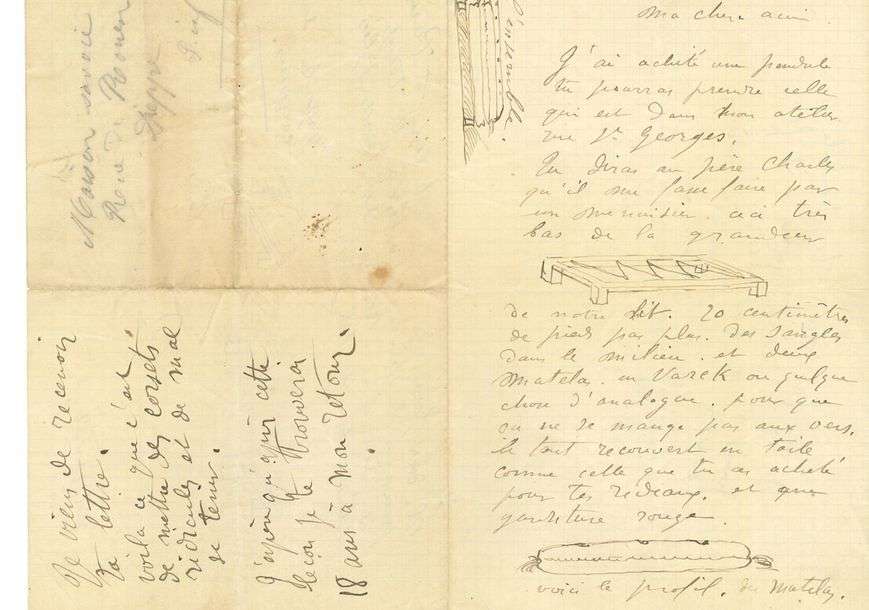 Ma chere amie
J'ai acheté une pendule
tu pourras prendre celle
qui est dans mon atelier
rue St Georges.
Tu diras au père Charles
qu'il me fasse faire par
un menuisier
bas de la grandeur
de notre lit. 20 centimètres
de pied pas plus. Des sangles
dans le milieu. et deux
Matelas. en Vareck ou quelque
chose d'analogue. pour que
ne se mange pas aux vers.
le tout recouvert en toile
comme celle que tu as acheté
pour tes rideaux. et
garniture rouge.
voici le profil. des Matelas.
l'ensemble.
Je viens de recevoir
ta lettre.
voila ce que c'est
de mettre des corsets
ridicules et de mal
se tenir.
J'espère qu'après cette
leçon je te trouverai
18 ans à mon retour.
Maison
Rue de Rouen
Dieppe